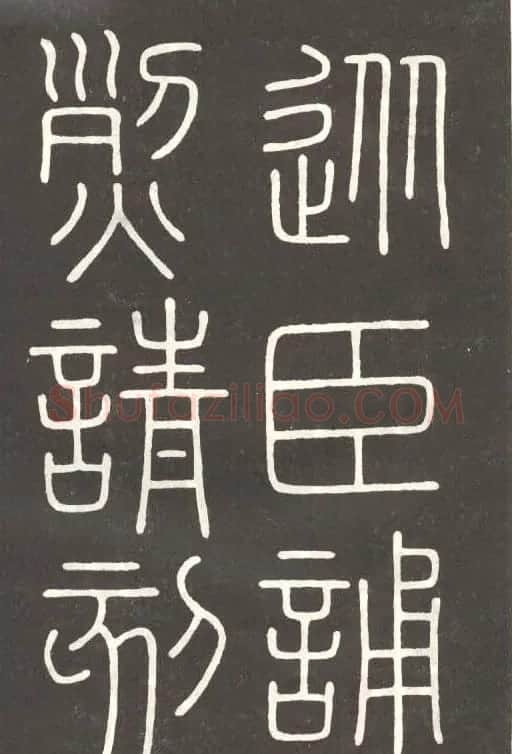 從臣誦
烈請刻
Shufaziliao.COM